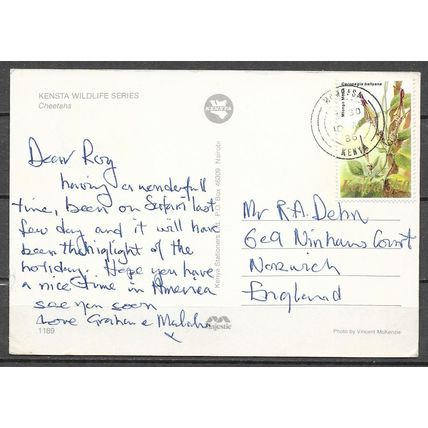 KENSTA WILDLIFE SERIES
Cheetahs
KENSTA
Ceropegia ballyana
KENYA
86
Dear Roy
having a wonderfull
time, been on Safari last
few day and it will have
been the higlight of the
holiday. Hope you have
a nice time in America
see you soon
Love Graham e
x
1189
Kenya Stationers Ltd. P.O. Box 46009 Nairobi
majestic
Mr R.A. Dehn
6e9 Ninhams Court
Norwich
England
Photo by Vincent McKenzie